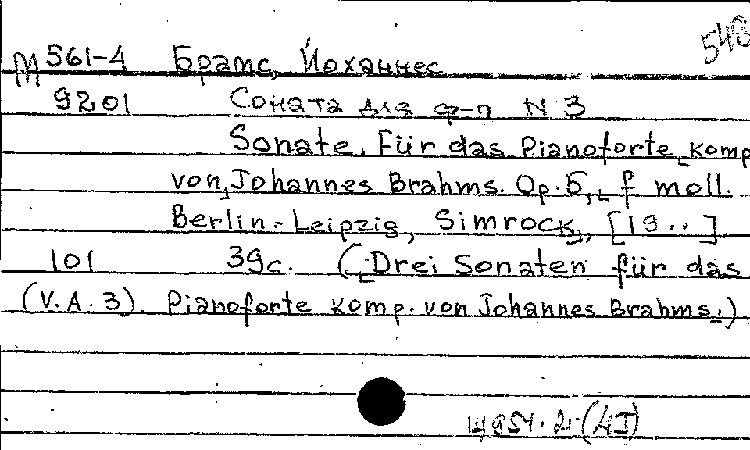 543
М 561-4 Брамс, Йоханнес
9201 Соната для ф-п N 3
Sonate. Für das Pianoforte komp
von Johannes Brahms. Op. 5, f moll.
Berlin - Leipzig, Simrock, [19..]
101 39с. (Drei Sonaten für das
(V.A.3) Pianoforte komp. von Johannes Brahms.)